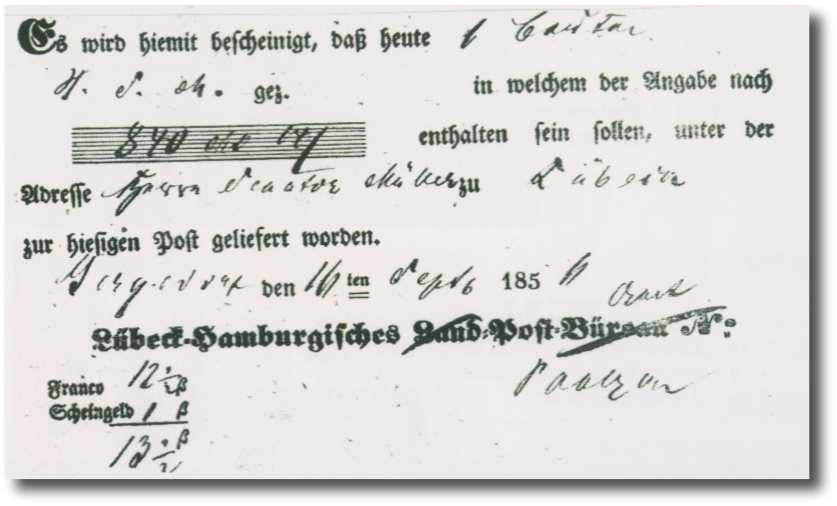 Es wird hiemit bescheinigt, daß heute 1
H. S. M. gez. in welchem der Angabe nach
840 enthalten sein sollen, unter der
Adresse Herrn Senator Müller zu Lübeck
zur hiesigen Post geliefert worden.
Bergedorf den 16 ten Septb 185
Lübeck-Hamburgisches Land-Post-Büreau №:
Franco 12 ½ β
Scheingeld 1 β
13 ½ β